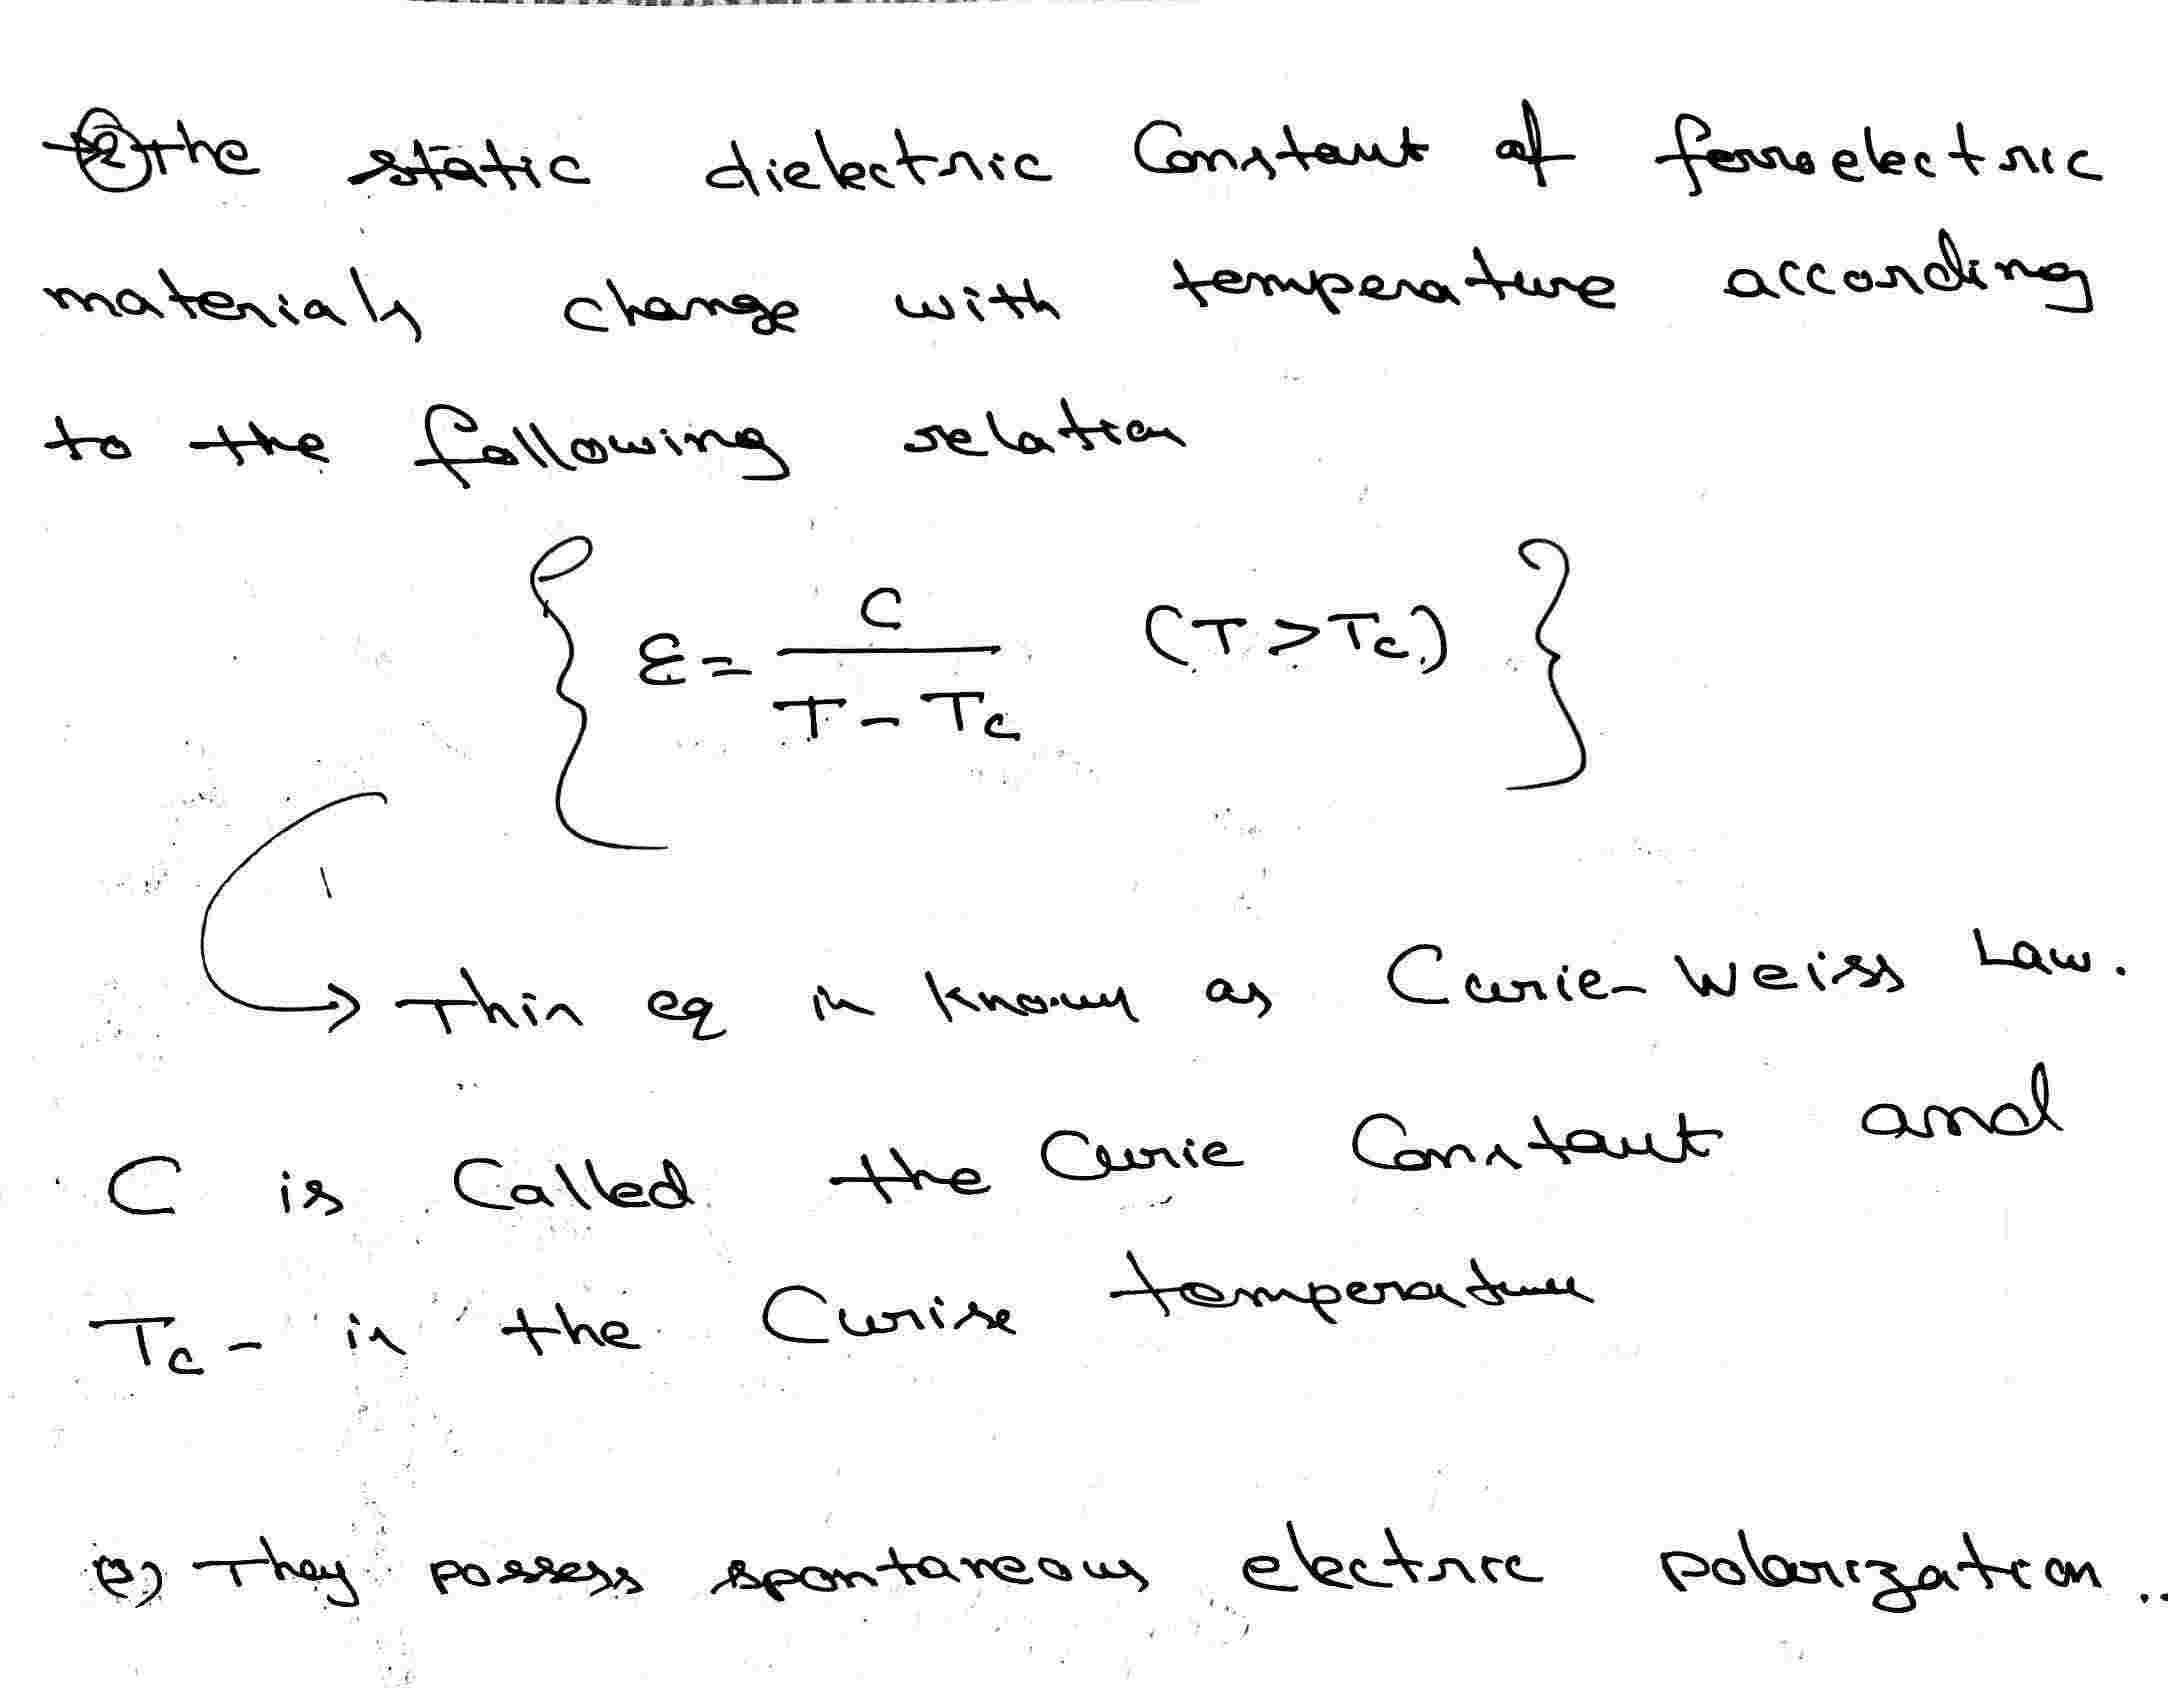 →② The static dielectric Constant of ferroelectric
materials change with temperature according
to the following relation
{ ε = C / (T - Tc) (T > Tc) }
→ This eq is known as Curie-Weiss Law.
C is called the Curie Constant and
Tc - is the Curie temperature
(3) They possess spontaneous electric polarization..